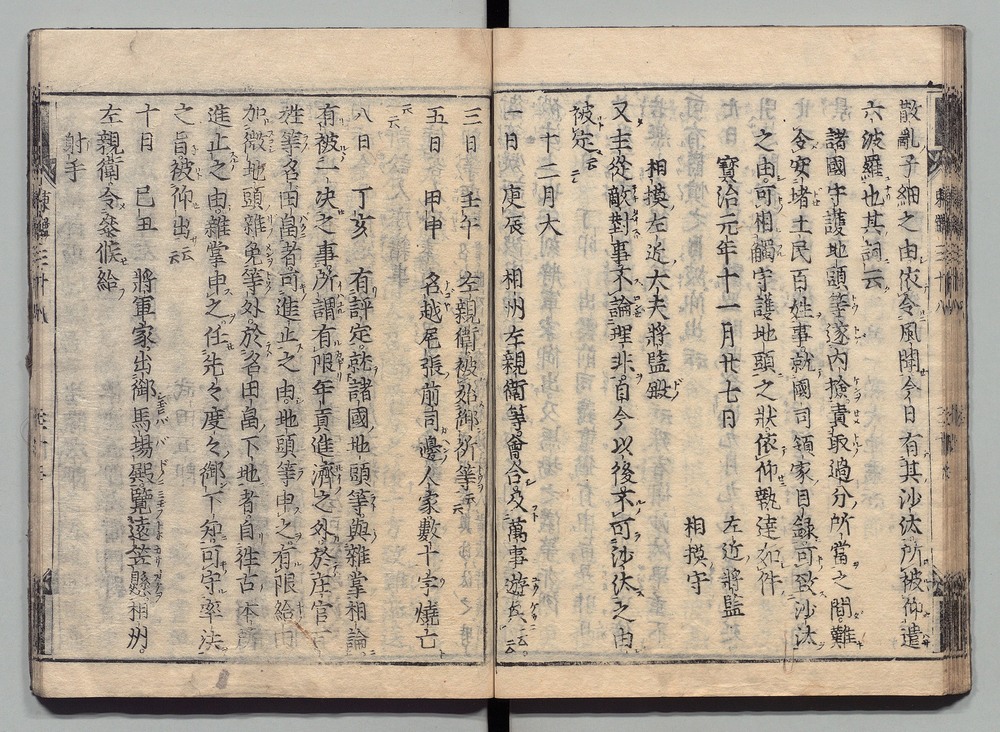 散亂子細之由依令風聞今日有其沙汰所被仰遣
六波羅也其詞云
諸國守護地頭等遂内撿責取過分所當之間難
令安堵土民百姓事就國司領家目録可致沙汰
之由可相觸守護地頭之狀依仰執達如件
寳治元年十一月廿七日 左近將監
相摸守
相摸左近大夫將監殿
又主從敵對事不論理非自今以後不可沙汰之由
被定云云
十二月大
一日 庚辰 相州左親衛等會合及萬事遊興云云
三日 壬午 左親衛被 御所等云云
五日 甲申 名越尾張前司邊人家數十宇燒亡
云云
八日 丁亥 有評定就諸國地頭等與雜掌相論
有被一決之事所謂有限年貢進濟之外於庄官百
姓等名田畠者可進止之由地頭等申之有限給田
加徴地頭雜免等外於名田畠下地者自往古本所
進止之由雜掌申之任先々度々御下知可守率法
之旨被仰出云云
十日 己丑 將軍家出御馬塲殿覽遠笠懸相州
左親衛令參候給
射手
東鑑三十八